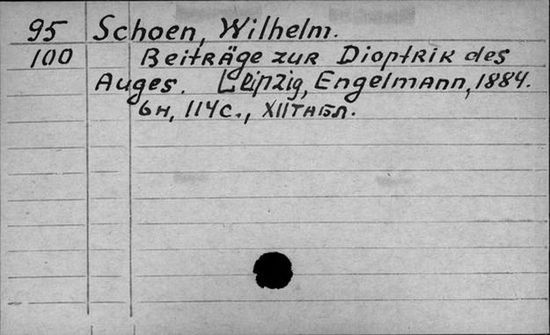 95 Schoen, Wilhelm.
100 Beiträge zur Dioptrik des
Auges. Leipzig, Engelmann, 1884.
6н, 114с., XII табл.